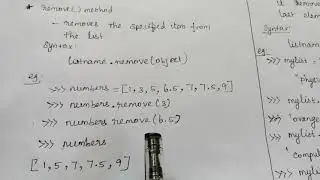 * Remove() method
- removes the specified item from
the list
Syntax:
listname.remove(object)
eg:
>>> numbers = [1, 3, 5, 6.5, 7, 7.5, 9]
>>> numbers.remove(3)
>>> numbers remove(6.5)
>>> numbers
[1, 5, 7, 7.5, 9]
it remove
last elem
Syntax:
listname
eg:
>>> mylist =
"physi
>>> mylist.
"orange
>>> mylist.
"comput
>>> myli